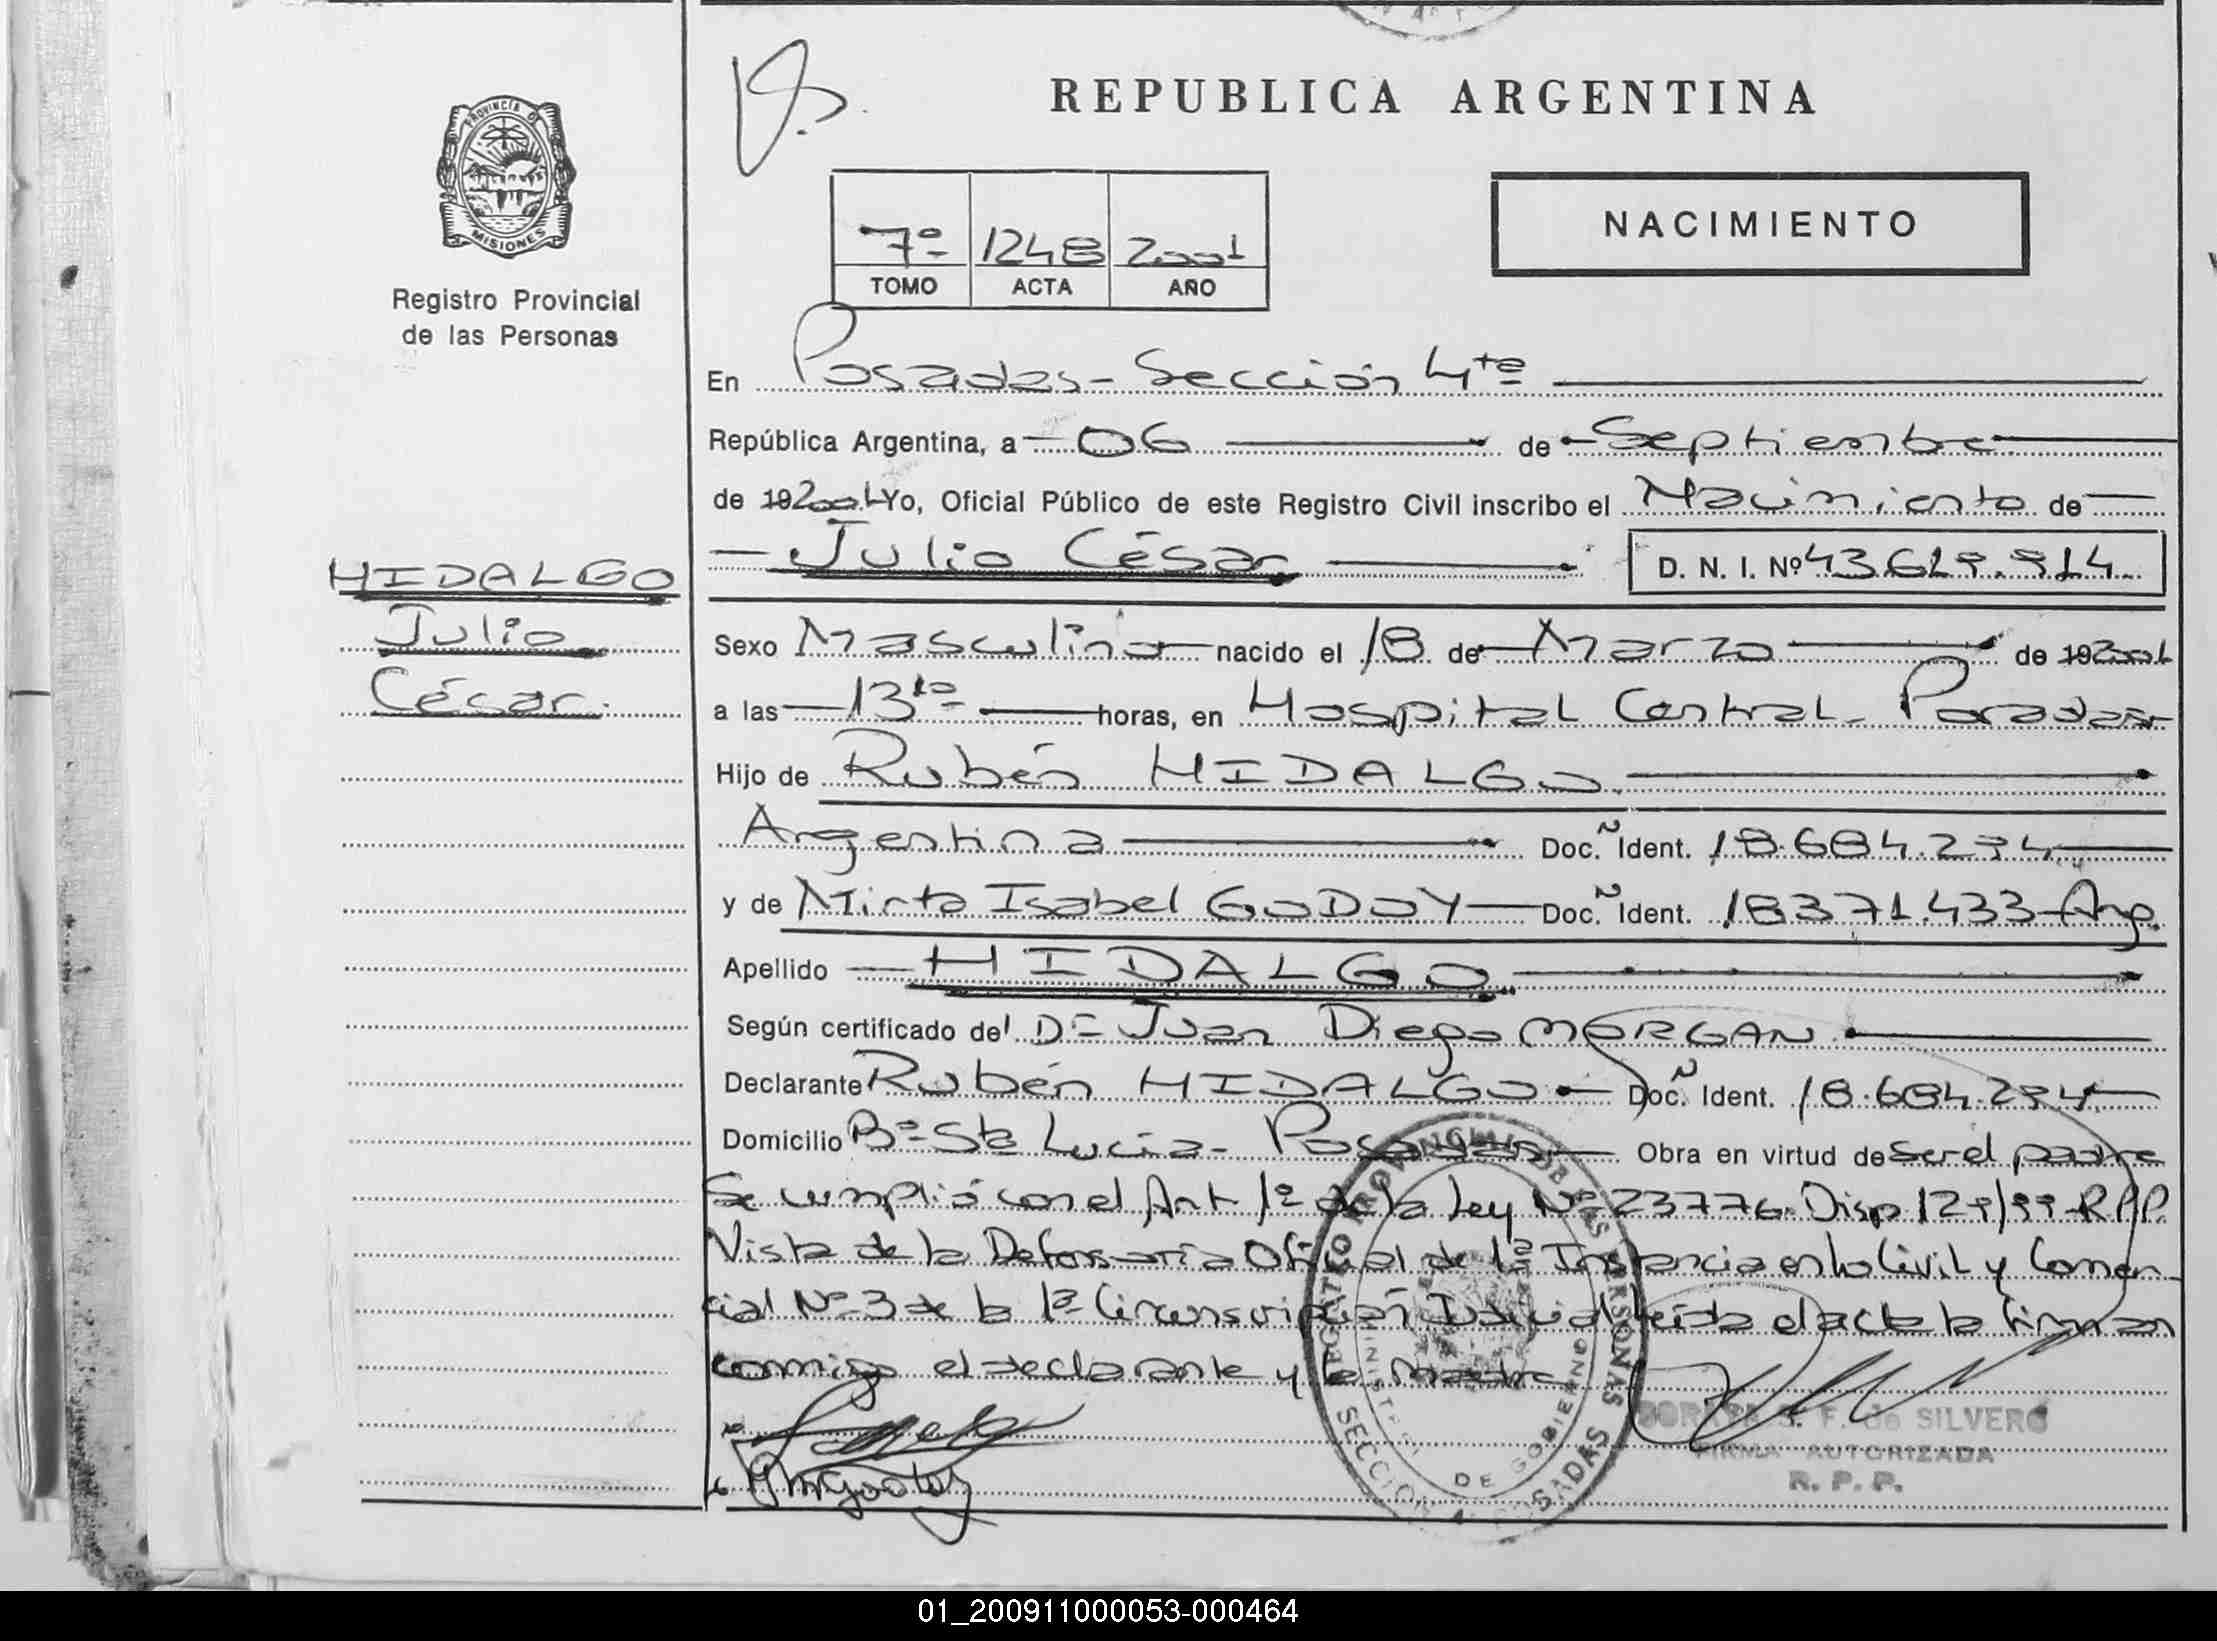 REPUBLICA ARGENTINA
PROVINCIA DE
MISIONES
Registro Provincial
de las Personas
NACIMIENTO
7º 1248 2001
TOMO ACTA AÑO
En Posadas - Sección 4ta
República Argentina, a 06 de Septiembre
de 19 2001 Yo, Oficial Público de este Registro Civil inscribo el Nacimiento de
Julio César D. N. I. Nº 43.619.914
HIDALGO
Julio
César
Sexo Masculino nacido el 18 de Marzo de 19 2001
a las 13 horas, en Hospital Central - Posadas
Hijo de Rubén HIDALGO
Argentina Doc. Ident. 18.684.274
y de Mirta Isabel GODOY Doc. Ident. 18.371.433 Arg.
Apellido HIDALGO
Según certificado del Dr Juan Diego MORGAN
Declarante Rubén HIDALGO Doc. Ident. 18.684.274
Domicilio Bº Sta Lucía - Posadas Obra en virtud de ser el padre
Se cumplió con el Art 1º de la Ley Nº 23776 Disp 129/99 R.P.P.
Vista de la Defensoría Oficial de 1ª Instancia en lo Civil y Comer-
cial Nº 3 de la 1ª Circunscripción Judicial Leída el acta la firman
conmigo el declarante y la madre
REGISTRO PROVINCIAL DE LAS PERSONAS
MINISTERIO DE GOBIERNO
SECCION 4 POSADAS
S. F. de SILVERO
FIRMA AUTORIZADA
R. P. P.
01_200911000053-000464